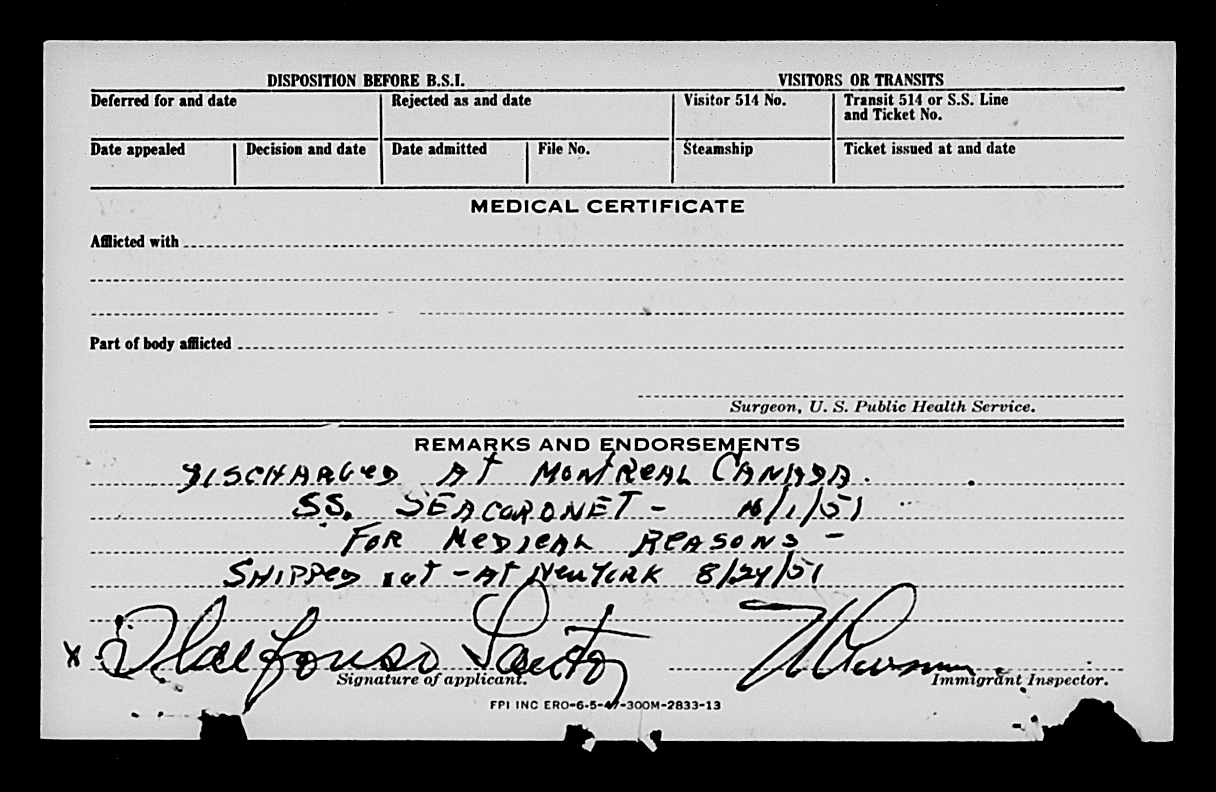 DISPOSITION BEFORE B.S.I. VISITORS OR TRANSITS
Deferred for and date Rejected as and date Visitor 514 No. Transit 514 or S.S. Line
and Ticket No.
Date appealed Decision and date Date admitted File No. Steamship Ticket issued at and date
MEDICAL CERTIFICATE
Afflicted with
Part of body afflicted
Surgeon, U. S. Public Health Service.
REMARKS AND ENDORSEMENTS
DISCHARGED AT MONTREAL CANADA.
SS. SEACORONET -
FOR MEDICAL REASONS -
SHIPPED OUT - AT NEW YORK 8/24/51
X Ildefonso Santos
Signature of applicant. Immigrant Inspector.
FPI INC ERO-6-5-47-300M-2833-13